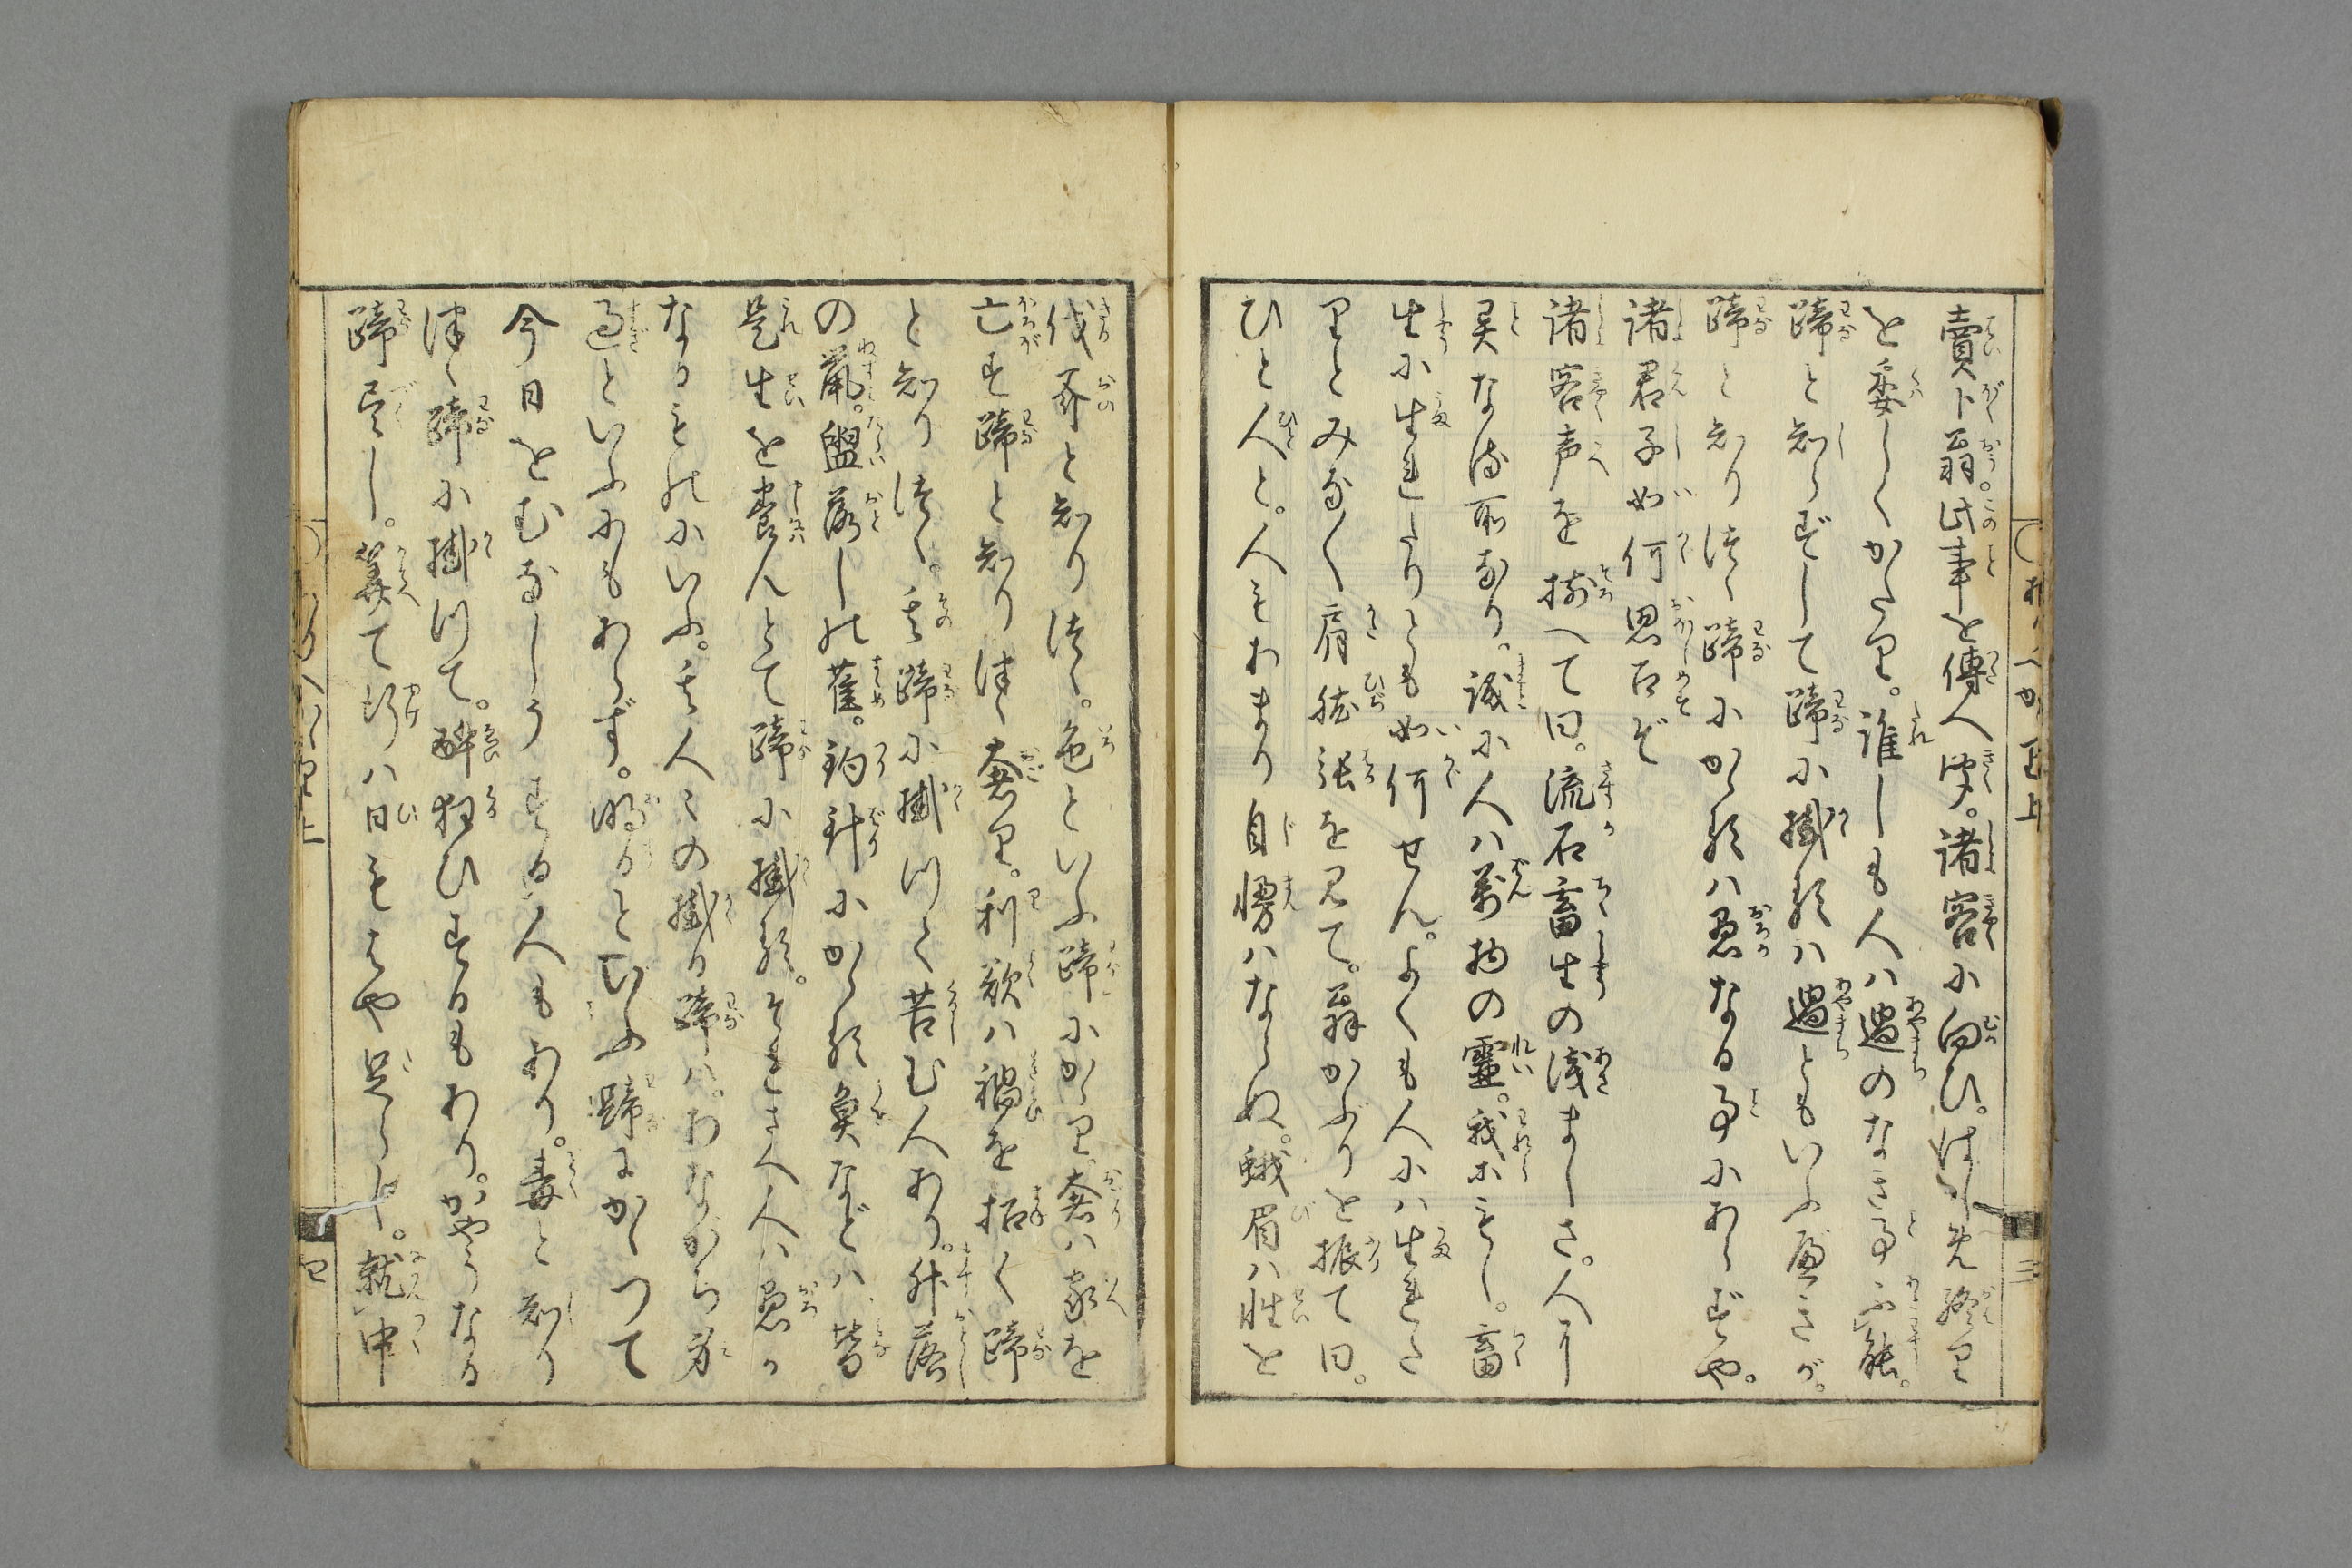 賣卜翁。此事を傳へ聞。諸客に向ひ。はしめ終り
を委しくかたり。誰しも人ハ過のなき事ハ不能。
蹄と知らずして蹄に掛るハ過ともいふべきが。
蹄と知りつゝ蹄にかゝるハ愚なる事にあらずや。
諸君子如何思召ぞ
諸客声を揃へて曰。流石畜生の淺ましさ。人と
異なる所なり。誠に人ハ萬物の靈。我等もし。畜
生に生れたりとも如何せん。よくも人にハ生れた
りとみなく肩肱張を見て。翁かぶりを振て曰。
ひと人と。人もあまり自慢ハならぬ。蛾眉ハ性を
伐斧と知りつゝ。色といふ蹄にかゝり。奢ハ家を
亡す蹄と知りつゝ奢り。利欲ハ禍を招く蹄
と知りつゝ。其蹄に掛つて苦む人あり。舛落
の鼠。盥落しの雀。釣針にかゝる魚などハ、皆
是生を養んとて蹄に掛る。それさへ人ハ愚か
なるものにいふ。其人〻の掛る蹄ハ。わながら身
過といふにもあらず。
今日をむなしうする人もあり。毒と知り
つゝ蹄に掛つて。酔狂ひするもあり。かやうなる
蹄尽し。算て行ハ日もはや足らじ。就中
三
四